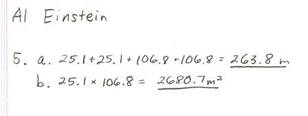 Al Einstein
5. a. 25.1 + 25.1 + 106.8 + 106.8 = 263.8 m
b. 25.1 × 106.8 = 2680.7 m²